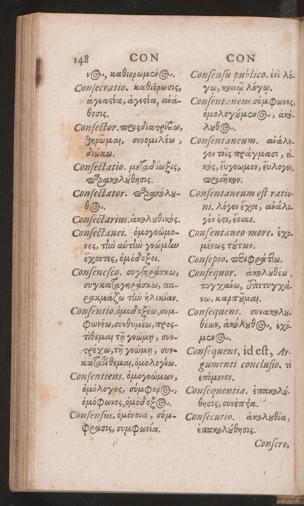 148 CON CON
νος, καθιερωμένος.
Consecratio. καθιέρωσις,
ἁγιασία, ἁγιεία, ἀνά-
θεσις.
Consector. προςδιατρίβω,
θηρῶμαι, συνομιλέω,
διώκω.
Consectatio. μεταδίωξις,
παρακολούθησις.
Consectator. παρακόλου-
θος.
Consectarius. ἀκολουθικός.
Consectanei. ὁμογνώμο-
νες, τὴν αὐτὴν γνώμην
ἔχοντες, ὁμόδοξοι.
Consenesco. συγγηράσκω,
συγκαταγηράσκω, πα-
ρακμάζω τὴν ἡλικίαν.
Consentio. ὁμοδοξέω, συμ-
φωνέω, συνθυμέω, προς-
τίθεμαι τῇ γνώμῃ, συν-
τρέχω, τῇ γνώμῃ, συγ-
κατατίθεμαι, ὁμολογέω.
Consentiens. ὁμογνώμων,
ὁμόλογος, σύμφορος,
ὁμόφωνος, ὁμόδοξος.
Consensus. ὁμόνοια, σύμ-
φρασις, συμφωνία.
Consensu publico. ἑνὶ λό-
γῳ, κοινῷ λόγῳ.
Consentaneus. σύμφωνος,
ὁμολογούμενος, ἀκό-
λουθος.
Consentaneum. ἀνάλο-
γον τοῖς πράγμασι, εἰ-
κὸς, εὐγνώμον, εὔλογον,
προσῆκον.
Consentaneum est ratio-
ni. λόγον ἔχει, ἀνάλο-
γόν ἐστι, ἔοικε.
Consentaneo more. ἑχο-
μένως τούτων.
Consepio. περιφράττω.
Consequor. ἀκολουθέω,
τυγχάνω, ἐπιτυγχά-
νω, καρποῦμαι.
Consequens. συνακολου-
θέων, ἀκόλουθος, ἐχό-
μενος.
Consequens, id est, Ar-
gumenti conclusio. τὸ
ἑπόμενον.
Consequentia. ἐπακολού-
θησις, συνέπεια.
Consecutio. ἀκολουθία,
ἐπακολούθησις.
Consero,